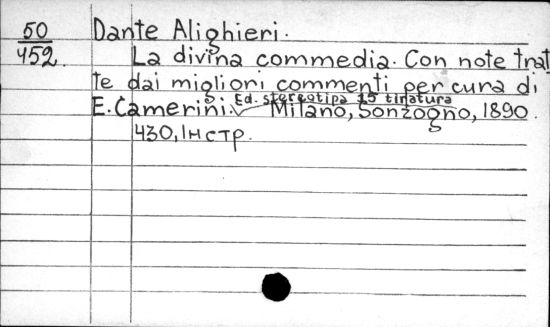 50 Dante Alighieri.
452. La divina commedia. Con note trat
te dai migliori commenti per cura di
Ed. stereotipa 15 tiratura
E. Camerini. Milano, Sonzogno, 1890.
430, 1н стр.